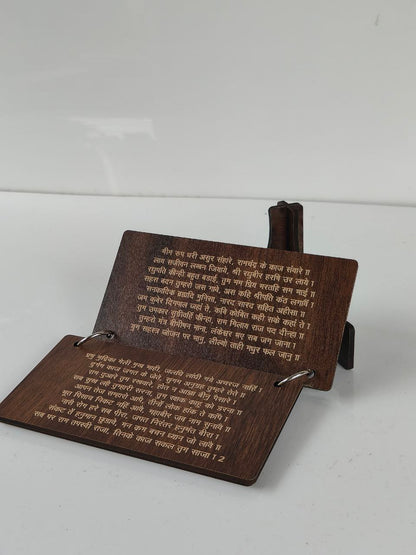 भीम रूप धरी असुर संहारे, रामचंद्र के काज संवारे ॥
लाय सजीवन लखन जियाये, श्री रघुबीर हरषि उर लाये ।
रघुपति कीन्ही बहुत बड़ाई, तुम मम प्रिय भरतहि सम भाई ॥
सहस बदन तुम्हरो जस गावे, अस कहि श्रीपति कंठ लगावें ।
सनकादिक ब्रह्मादि मुनिसा, नारद सारद सहित अहीसा ॥
जम कुबेर दिगपाल जहाँ ते, कवि कोविद कही सके कहां ते ।
तुम उपकार सुग्रीवहिं कीन्हा, राम मिलाय राज पद दीन्हा ॥
तुम्हारो मंत्र बिभीषन माना, लंकेश्वर भए सब जग जाना ।
युग सहस्त्र जोजन पर भानु, लील्यो ताही मधुर फल जानु ॥
प्रभु मुद्रिका मेली मुख माही, जलधि लांघी गये अचरज नाहीं ।
दुर्गम काज जगत के जेते, सुगम अनुग्रह तुम्हरे तेते ॥
राम दुआरे तुम रखवारे, होत न आज्ञा बिनु पैसारे ।
सब सुख लहै तुम्हारी सरना, तुम रक्षक काहू को डरना ॥
आपन तेज सम्हारो आपै, तीनों लोक हांक ते कांपै ।
भूत पिसाच निकट नहीं आवै, महाबीर जब नाम सुनावै ॥
नासै रोग हरे सब पीरा, जपत निरंतर हनुमंत बीरा ।
संकट ते हनुमान छुड़ावे, मन क्रम बचन ध्यान जो लावै ॥
सब पर राम तपस्वी राजा, तिनके काज सकल तुम साजा । 2